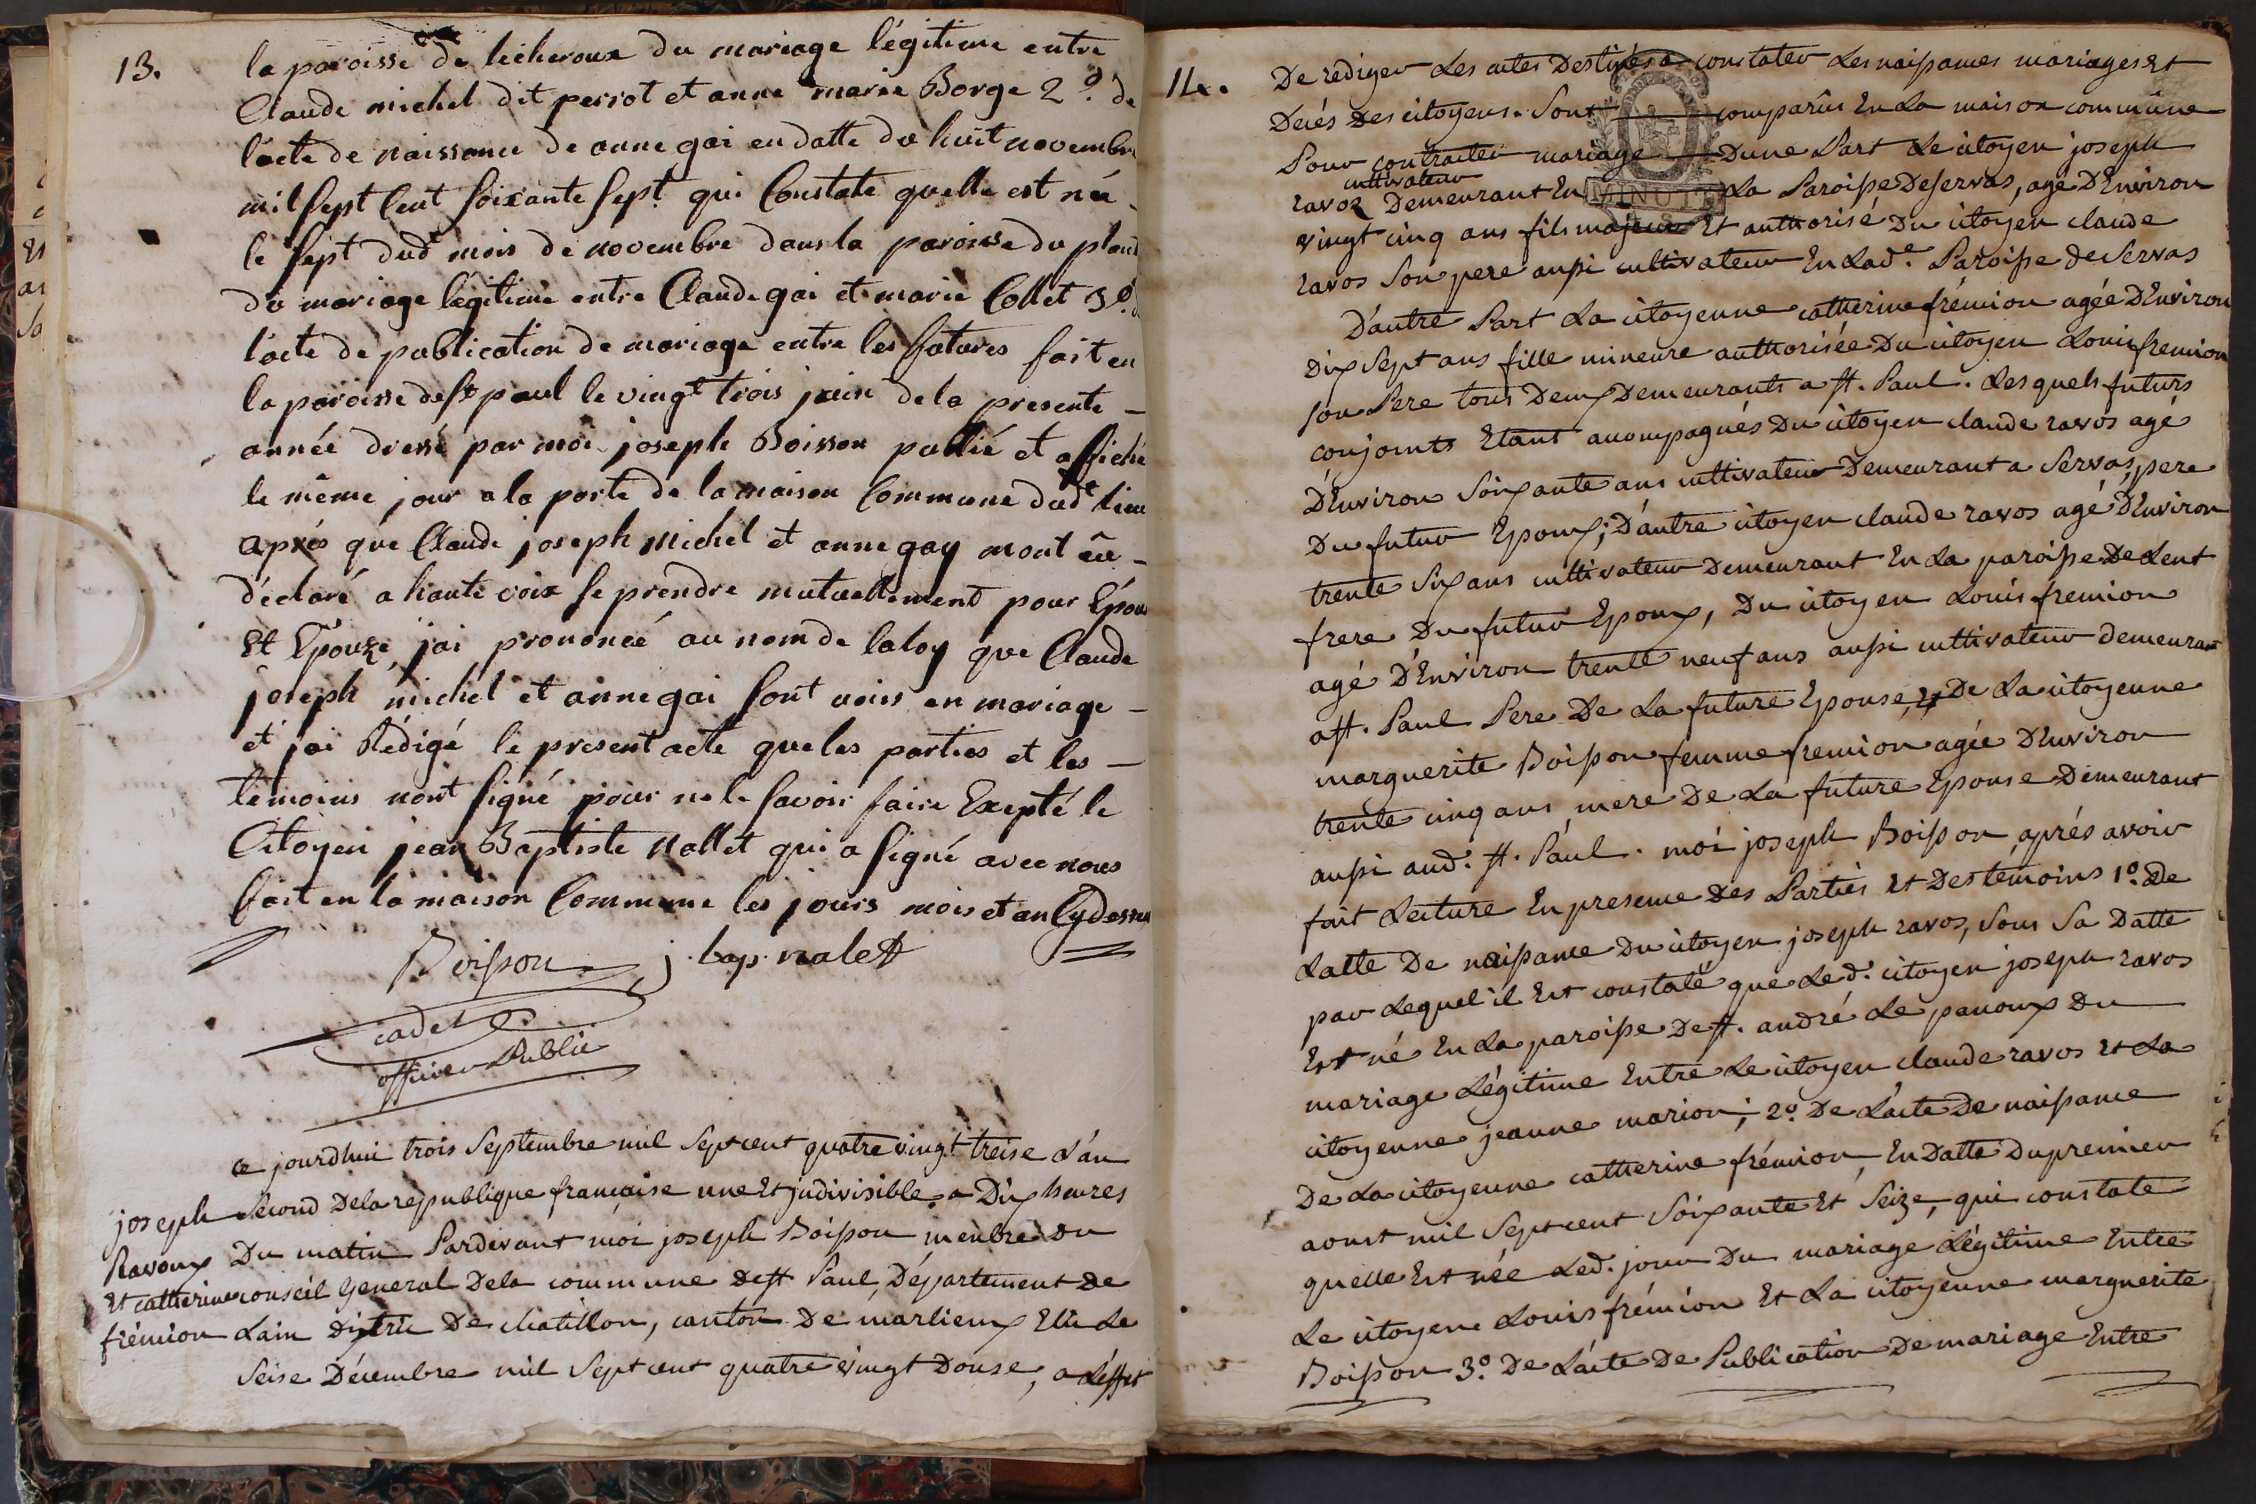 13.
la paroisse de lécheroux du mariage légitime entre
Claude michel dit perrot et anne marie Borge 2º. de
l'acte de naissance de anne gai en datte du huit novembre
mil sept Cent soixante sept qui Constate quelle est née
le sept dud mois de novembre dans la paroisse du
du mariage légitime entre Claude gai et marie Collet 3º.
l'acte de publication de mariage entre les futures fait en
la paroisse de st paul le vingt trois juin de la presente
année dressé par moi joseph Boisson publié et affiché
le même jour a la porte de la maison Commune dudt lieu
aprés que Claude joseph Michel et anne gay mont êu
déclaré a haute voix se prendre mutuellement pour Epoux
Et Epouze j'ai prononcé au nom de la loy que Claude
joseph michel et anne gai sont unis en mariage
et j'ai Rédigé le present acte que les parties et les
temoins nont signé pour ne le savoir faire Exepté le
Citoyen jean Baptiste Nallet qui a signé avec nous
fait en la maison Commune les jours mois et an Cydessus
Boisson j. bap. nalett
cadet
officier Public
ce jourdhui trois septembre mil sept cent quatre vingt treise L'an
joseph Second De la republique française une Et jndivisible a Dix heures
Ravoux Du matin Pardevant moi joseph Boisson membre du
Et catherine conseil General De la commune de st Paul, Département de
frémion Lain District De chatillon, canton De marlieux Elû Le
Seise Décembre mil Sept cent quatre vingt Douse, a L'effet
14.
De rediger Les actes Destinés a constater Les naissances mariages Et
Décés Des citoyens. Sont comparûs En La maison commûne
Pour contracter mariage Dune Part Le citoyen joseph
cultivateur
ravoz Demeurant En La Paroisse De Servas, agé D'Environ
vingt cinq ans fils majeur Et authorisé Du citoyen claude
ravos Son pere aussi cultivateur En Lade. Paroisse de Servas
D'autre Part La citoyenne catherine frémion agée D'Environ
Dix Sept ans fille mineure authorisée Du citoyen Louis fremion
son Pere tous Deux Demeurants a st. Paul. Lesquels futurs
conjoints Etant accompagnés Du citoyen claude ravos agé
D'Environ Soixante ans cultivateur Demeurant a Servas, pere
Du futur Epoux; D'autre citoyen claude ravos agé D'Environ
trente Six ans cultivateur Demeurant En La paroisse De Lent
frere Du futur Epoux, Du citoyen Louis fremion
agé D'Environ trente neuf ans aussi cultivateur demeurant
a st. Paul Pere De La future Epouse, Et De La citoyenne
marguerite Boisson femme fremion agée D'Environ
trente cinq ans, mere De La future Epouse Demeurant
aussi aud. st. Paul. moi joseph Boisson, aprés avoir
fait Lecture En presence Des Parties Et Des temoins 1º. De
Lacte De naissance Du citoyen joseph ravos, Sous Sa Datte
par Lequel il Est constaté que Led. citoyen joseph ravos
Est né En La paroisse De st. andré Le panoux Du
mariage Légitime Entre Le citoyen claude ravos Et La
citoyenne jeanne marion; 2º. De L'acte De naissance
De La citoyenne catherine frémion, En Datte Du premier
aoust mil Sept cent Soixante Et Seize, qui constate
quelle Est née Led. jour Du mariage Légitime Entre
Le citoyen Louis frémion Et La citoyenne marguerite
Boisson 3º. De L'acte De Publication De mariage Entre
MINUTE